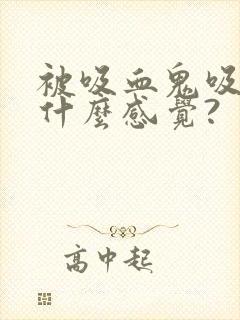 被吸血鬼吸
什麼感覺?
高中起